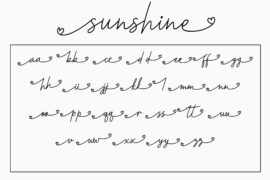 sunshine
aa bb cc dd ee ff gg
hh ii jj kk ll mm nn
oo pp qq rr ss tt uu
vv ww xx yy zz